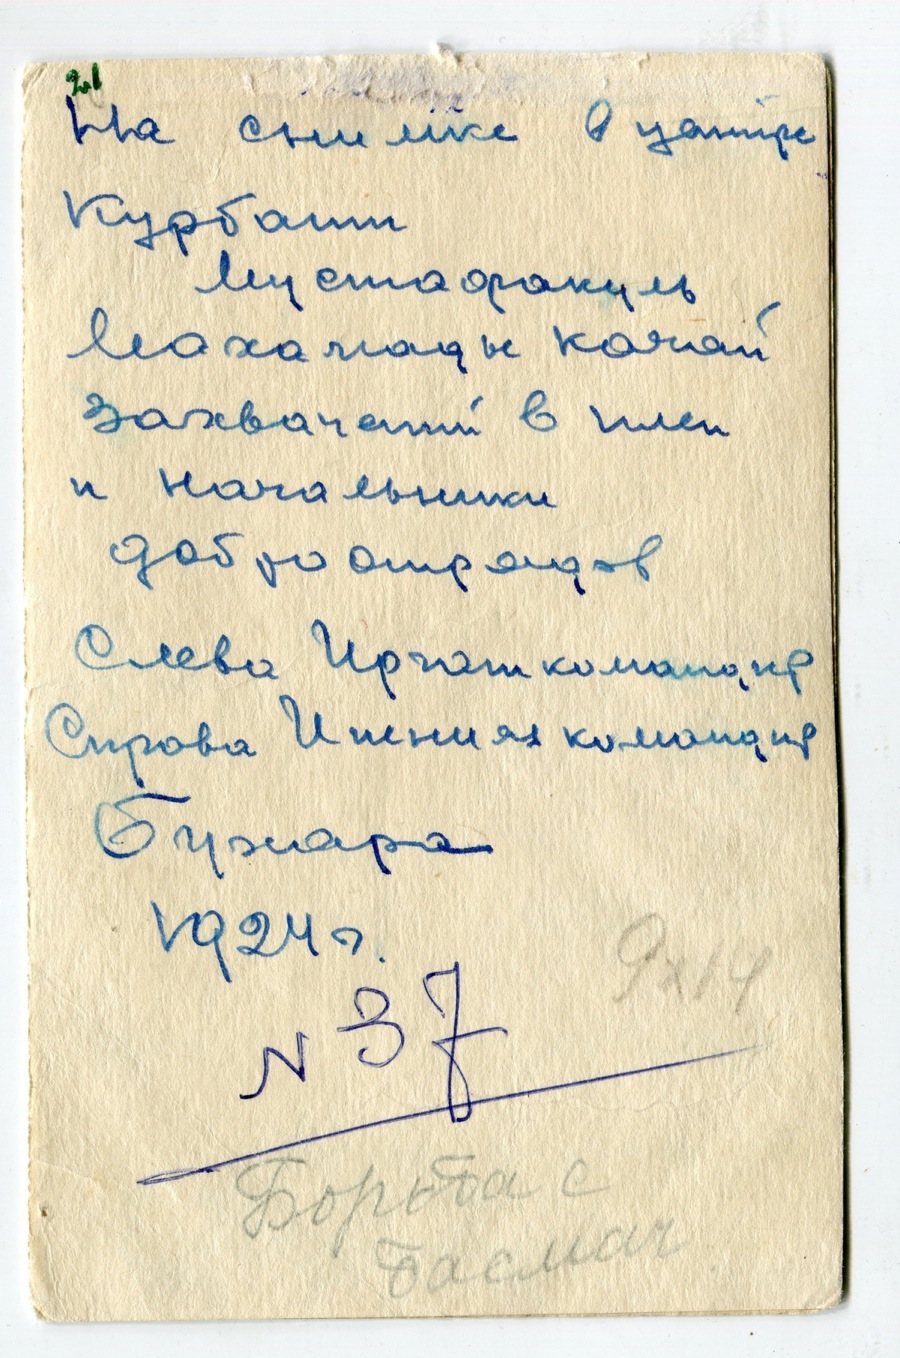 21
На снимке в центре
Курбаши
Мустафакуль
захвачений в плен
и начальники
доброотрядов
Слева Иргаш командир
Справа командир
Бухара
1924 г.
N 37
9x14
Борьба с
басмач